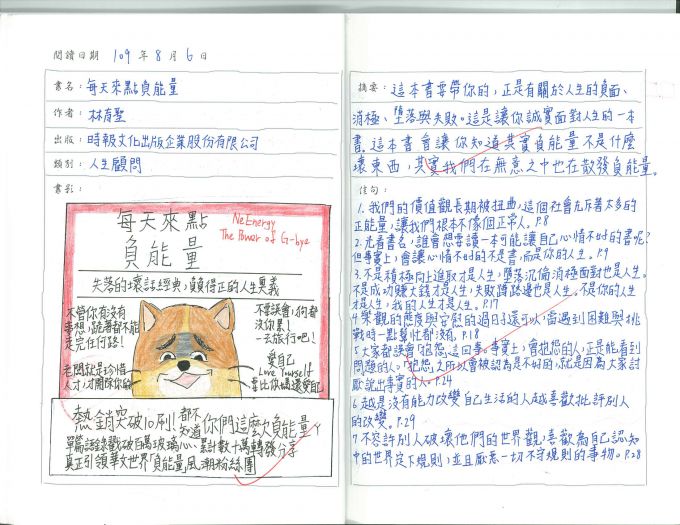 閱讀日期 109 年 8 月 6 日
書名：每天來點負能量
作者：林育聖
出版：時報文化出版企業股份有限公司
類別：人生顧問
書影：
每天來點
負能量
NeEnergy
The Power of G-bye
失落的壞話經典，負負得正的人生奧義
不管你有沒有
夢想，跪著都不能
走完任何路！
老闆就是珍惜
人才，才開除你的
不要誤會，狗都
沒你累！
一去旅行吧！
愛自己
Love Yourself
要比你媽還愛自己
熱銷突破10刷！都不知道你們這麼負能量ㄚ
單篇語錄戳破百萬玻璃心、累計數十萬轉發分享
真正引領華文世界「負能量」風潮粉絲團
摘要：這本書要帶你的，正是有關於人生的負面、
消極、墮落與失敗。這是讓你誠實面對人生的一本
書。這本書會讓你知道其實負能量不是什麼
壞東西，其實我們在無意之中也在散發負能量。
佳句：
1. 我們的價值觀長期被扭曲，這個社會充斥著太多的
正能量，讓我們根本不像個正常人。P.8
2. 光看書名，誰會想要讀一本可能讓自己心情不好的書呢？
但事實上，會讓心情不好的不是書，而是你的人生。P.9
3. 不是積極向上進取才是人生，墮落沉淪消極面對也是人生。
不是成功賺大錢才是人生，失敗蹲路邊也是人生。不是你的人生
才是人生，我的人生才是人生。P.17
4. 樂觀的態度與安慰的過日子還可以，當遇到困難與挑
戰時一點幫忙都沒有。P.18
5. 大家都誤會「抱怨」這回事。事實上，會抱怨的人，正是能看到
問題的人。「抱怨」之所以會被認為是不好的，就是因為大家討
厭說出事實的人。P.24
6. 越是沒有能力改變自己生活的人越喜歡批評別人
的改變。P.29
7. 不容許別人破壞他們的世界觀，喜歡為自己認知
中的世界定下規則，並且厭惡一切不守規則的事物。P.28